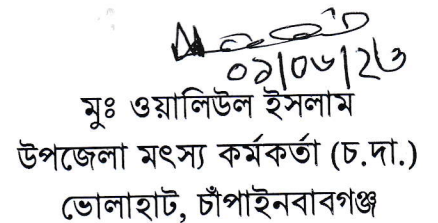 ০১|০৬|২৩
মুঃ ওয়ালিউল ইসলাম
উপজেলা মৎস্য কর্মকর্তা (চ.দা.)
ভোলাহাট, চাঁপাইনবাবগঞ্জ